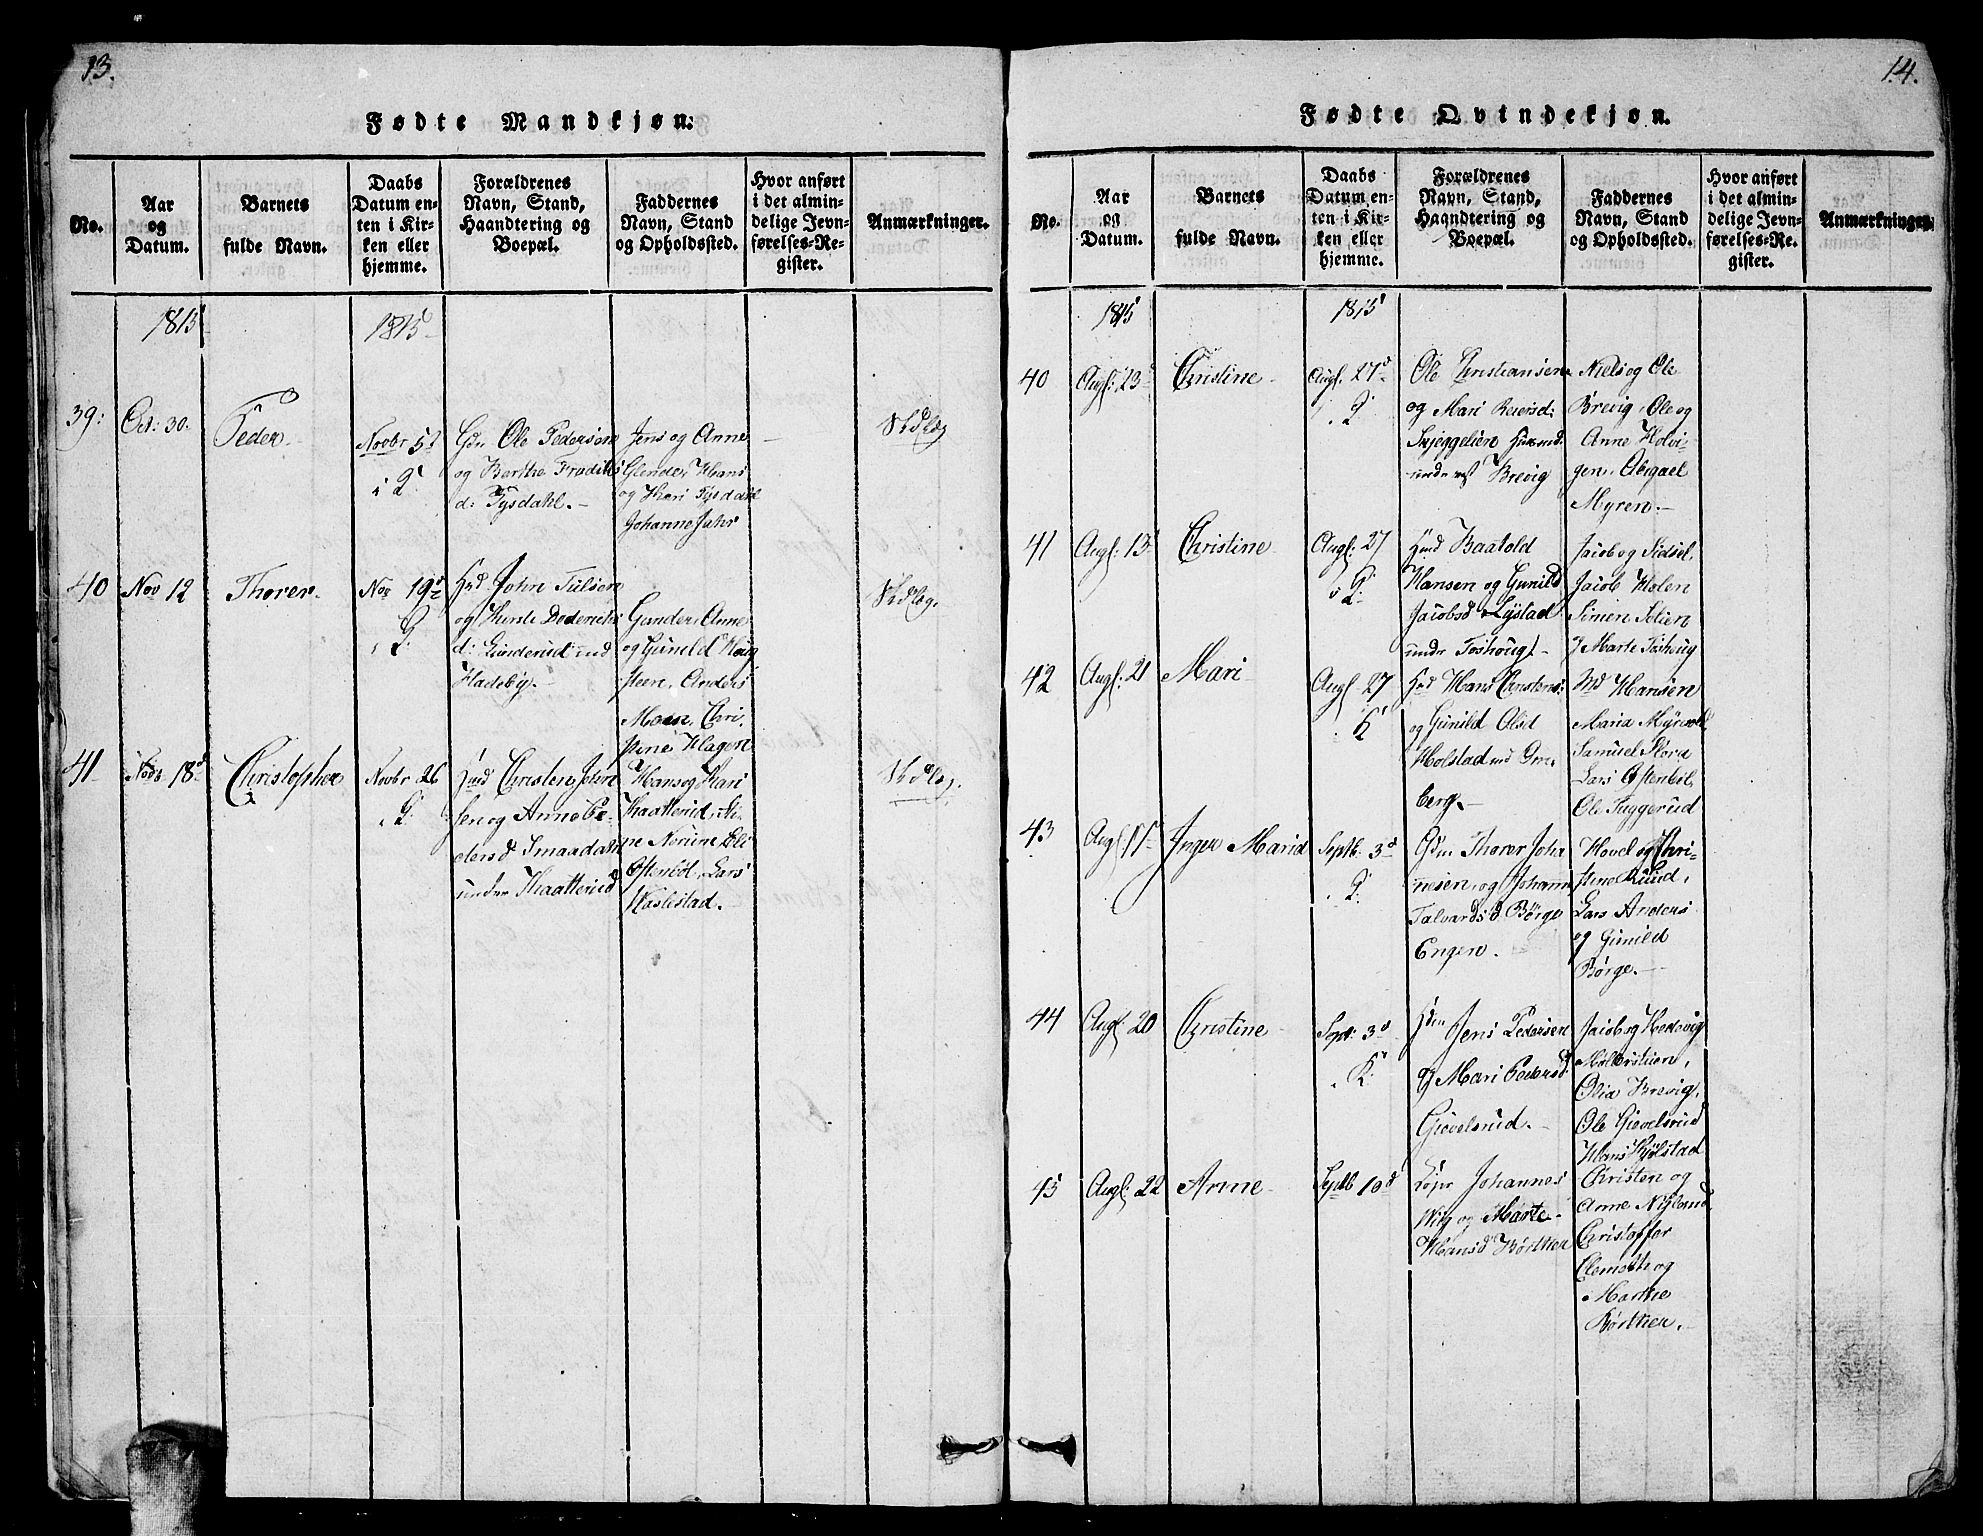 13.
Fødte Mandkjøn.
No.
Aar
og
Datum.
Barnets
fulde Navn.
Daabs
Datum en-
ten i Kir-
ken eller
hjemme.
Forældrenes
Navn, Stand,
Haandtering og
Boepæl.
Faddernes
Navn, Stand
og Opholdssted.
Hvor anført
i det almin-
delige Jevn-
førelses-Re-
gister.
Anmærkninger.
1815
1815
39:
Oct: 30.
Peder.
Novbr 5
Gdr. Ole Pedersen
og Berthe Fradriks
d: Tysdahl.
Jens og Anne
Glende, Hans
og Kari Tysdahl
Johanne Jahr
40
Nov 12
Thorer.
Nov 19
John Julsen
og Kersti Boderichs
d: Gunderud und
Hadeby.
Gunder, Anne
og Gunild Houg
steen, Anders
Moen, Chri
stine Hagen
41
Novb. 18
Christopher
Novbr 26
Christen John
sen og Anne Pe-
dersd Smaadahl
under Kaatterud
Hans og Kari
Kaatterud,
Norune
Østenbøl, Lars
Haslestad.
14.
Fødte Qvindekjøn.
No.
Aar
og
Datum.
Barnets
fulde Navn.
Daabs
Datum en-
ten i Kir-
ken eller
hjemme.
Forældrenes
Navn, Stand,
Haandtering og
Boepæl.
Faddernes
Navn, Stand
og Opholdssted.
Hvor anført
i det almin-
delige Jevn-
førelses-Re-
gister.
Anmærkninger.
1815
1815
40
Aug: 23
Christine
Aug. 27
Ole Christiansen
og Mari Reiersd:
Skjeggelien Husmd.
under Brevig
Niels og Ole
Brevig, Ole og
Anne Holvi-
gen, Abigael
Myren.
41
Aug: 13
Christine
Aug: 27
Hmd Baatold
Hansen og Gunild
Jacobsd Lystad
under Toshoug
Jacob og Sidsel,
Jacob Holen
Simen Selien
Marte Toshoug
42
Aug: 21
Mari
Aug 27
K
Hmd Hans Christens:
og Gunild Olsd
Holstad und Om
berg.
Hansen
Maria Myrvold
Samuel Flora
Lars Østenbøl
Ole Tuggerud
43
Aug 11
Inger Maria
Septb. 3
Gdm Thorer Joha
nnesen, og Johann
Talvardsd Børge
Engen.
Hovel og Chri-
stine Ruud,
Lars Anders
og Gunild
Børge.
44
Aug 20
Christine
Sept: 3
K
Jens Pedersen
og Mari Pedersd
Gievelsrud.
Jacob og Hedevig
Mølerstuen,
Olia Brevig,
Ole Gievelsrud
Hans Kjølstad
45
Aug: 22
Anne
Septb 10
Johannes
Wiig og Marte
Hansd Børkken
Christen og
Anne Nylund,
Christoffer
Clemets og
Marthe
Børkken.